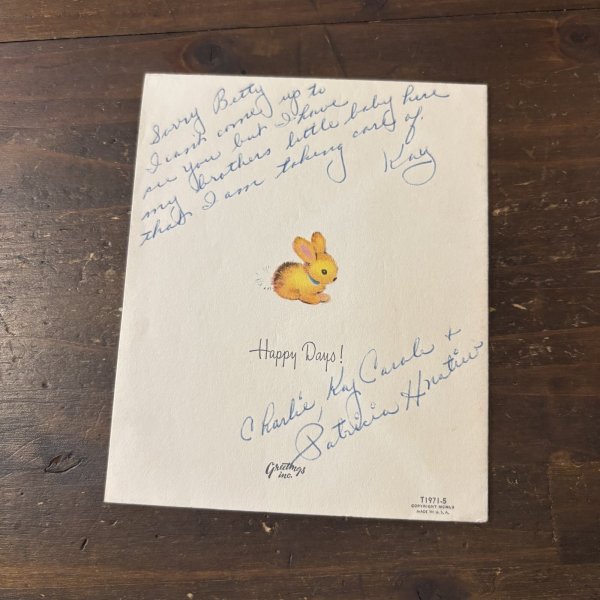 Sorry Betty
I cant come up to
see you but I have
my brothers little baby here
that I am taking care of.
Kay
Happy Days!
Charlie, Kay Carole +
Patricia
Greetings
inc.
T1971-5
COPYRIGHT
MADE IN U.S.A.